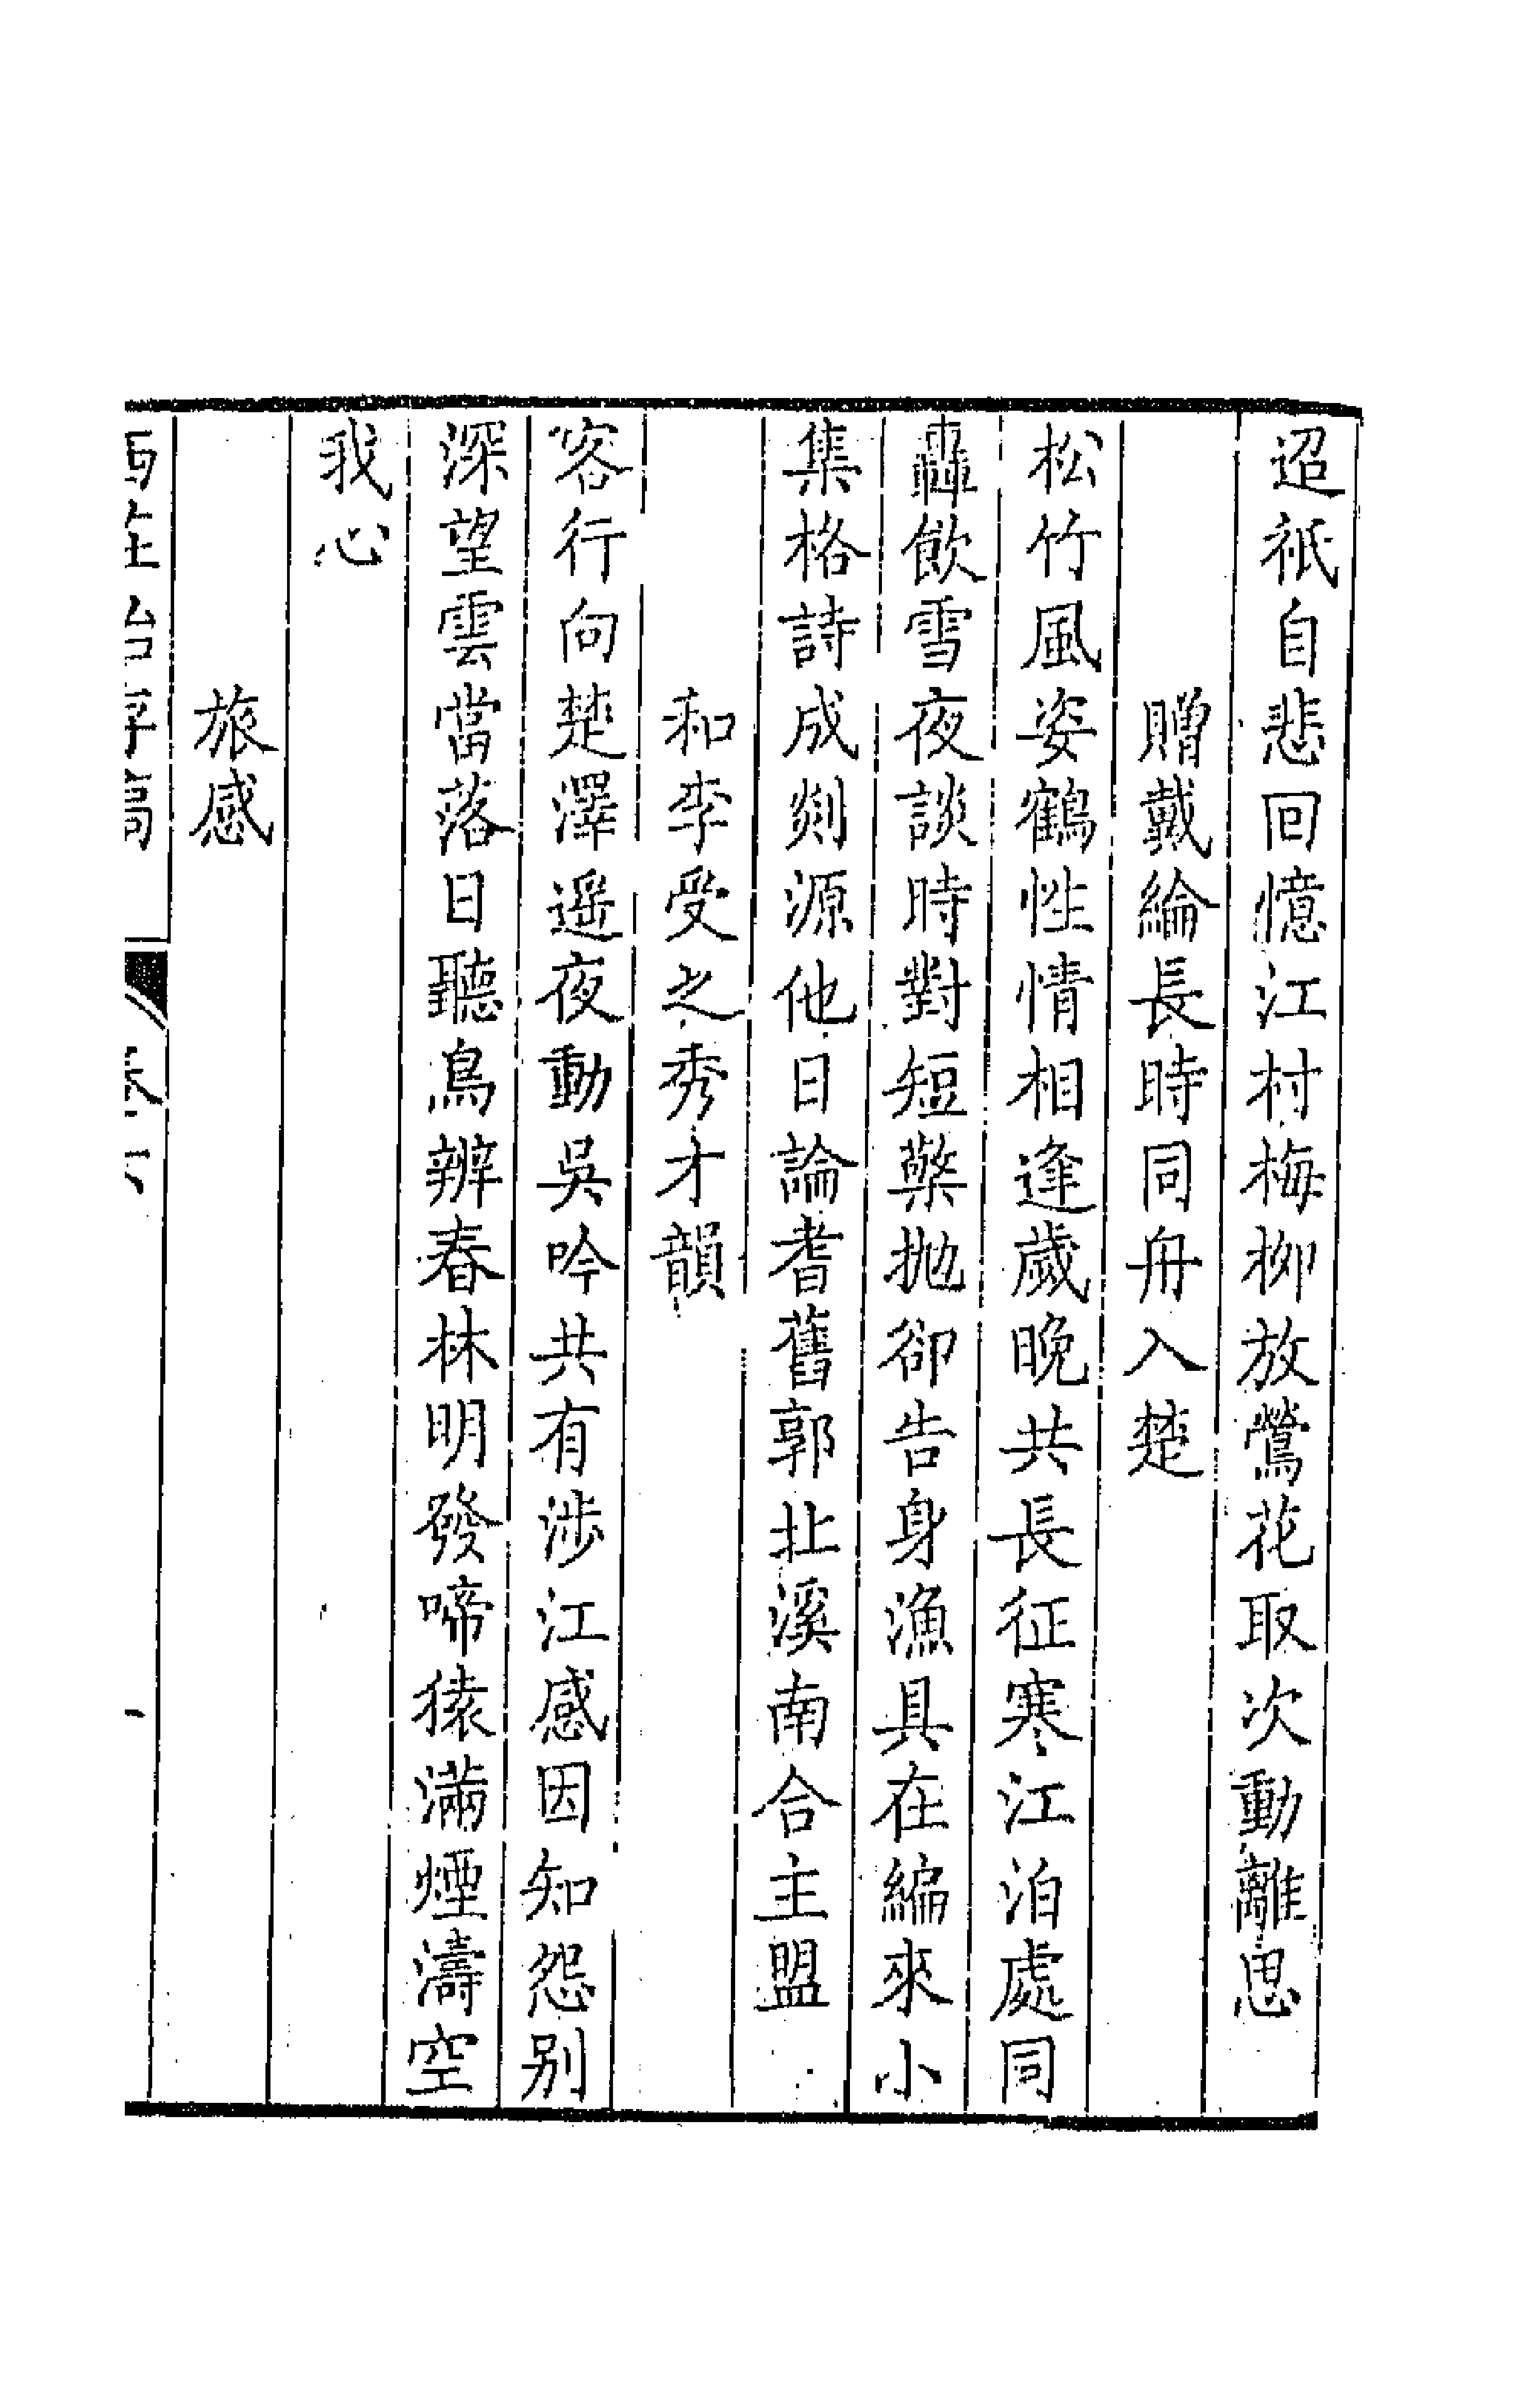 迢祇自悲回憶江村梅栁放鶯花取次動離思
贈戴綸長時同舟入楚
松竹風姿鶴性情相逢歲晚共長征寒江泊處同
轟飲雪夜談時對短檠拋卻告身漁具在編來小
集格詩成剡源他日論耆舊郭北溪南合主盟
和李受之秀才韻
客行向楚澤遥夜動吳吟共有涉江感因知怨别
深望雲當落日聽鳥辨春林明發啼猿滿煙濤空
我心
旅感